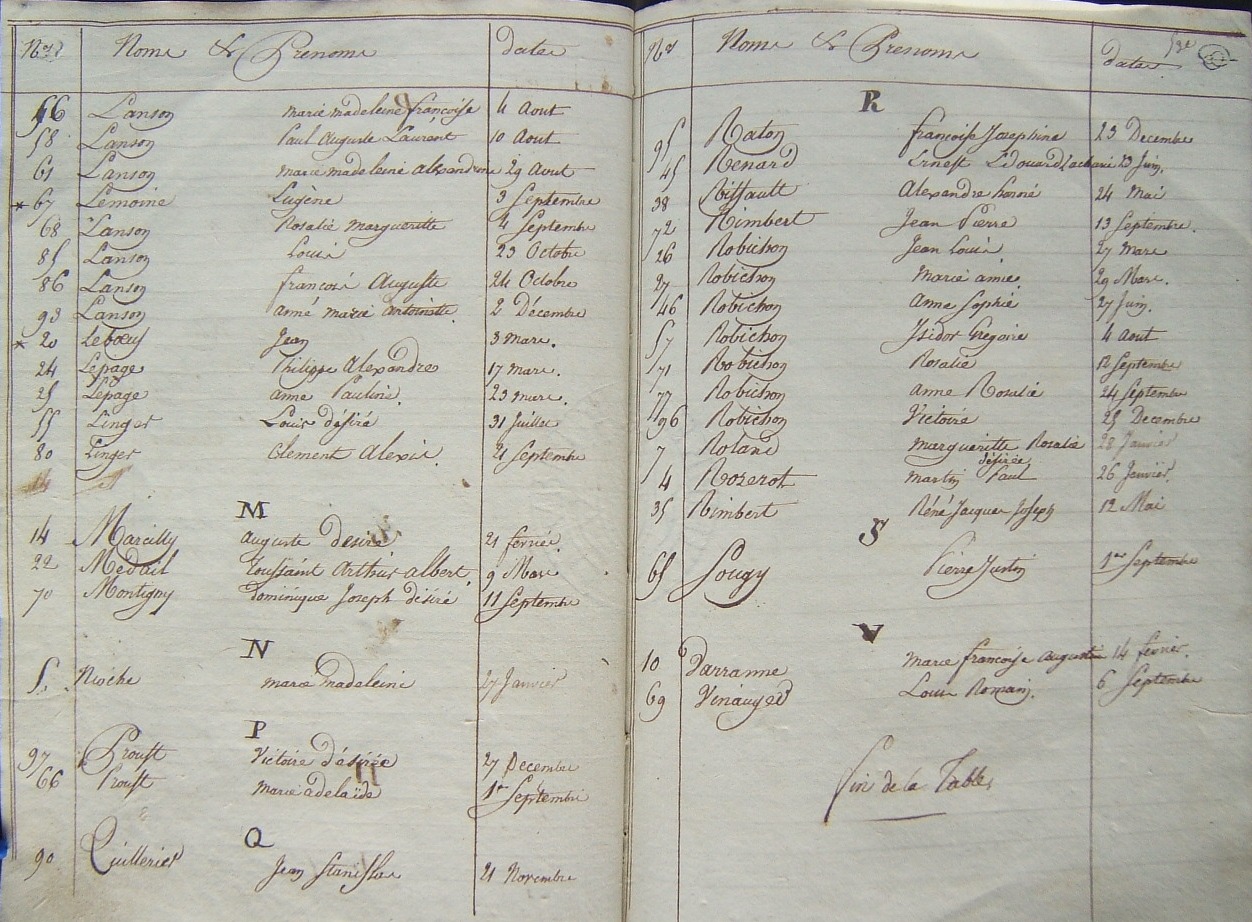 Nos Noms & Prenoms dates
56 Lanson marie madeleine francoise 4 Aout
58 Lanson Paul Auguste Laurent 10 Aout
61 Lanson marie madeleine alexandrine 29 Aout
* 67 Lemoine Eugène 3 Septembre
68 Lanson Rosalie margueritte 4 Septembre
85 Lanson Louis 23 Octobre
86 Lanson francois Auguste 24 Octobre
93 Lanson aimé marie antoinette 2 Décembre
* 20 Leboeuf Jean 3 mars.
24 Lepage Philippe Alexandre 17 mars.
25 Lepage anne Pauline 23 mars.
55 Linger Louis désiré 31 Juillet
80 Linger Clement Alexis. 21 Septembre
M
14 Marcilly auguste desiré 21 fevrier.
22 Medail Toussaint Arthur albert. 9 Mars
70 Montigny Dominique Joseph désiré 11 Septembre
N
5. Nioche marie madeleine 27 Janvier
P
97 Proust Victoire désirée 27 Decembre
66 Proust Marie adelaïde 1er Septembre
Q
90 Quillerier Jean Stanislas 21 Novembre
Nos Noms & Prenoms dates
R
95 Raton francoise Josephine 23 Decembre
45 Renard Ernest Edouard Zacharie 23 Juin.
38 Riffault Alexandre honoré 24 Mai
72 Rimbert Jean Pierre 13 Septembre.
26 Robichon Jean Louis 27 mars
27 Robichon Marie anne. 29 Mars.
46 Robichon Anne Sophie 27 Juin.
57 Robichon Isidor Gregoire 4 Aout
71 Robichon Rosalie 12 Septembre
77 Robichon anne Rosalie 24 Septembre
96 Robichon Victoire 25 Decembre
7 Roland margueritte Rosalie 28 Janvier
désirée
4 Rozerot martin Paul 26 Janvier.
35 Rimbert Réné Jacques Joseph 12 Mai
S
65 Sougy Pierre Justin 1er Septembre
V
10 Varranne Marie francoise augustine 14 fevrier.
69 Vinauger Louis Romain. 6 Septembre
fin de la Table.